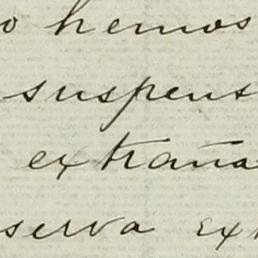 o hemos
suspens
extraña
serva ex